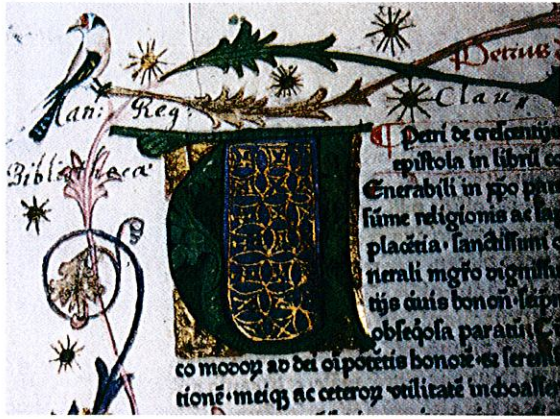 Petrus
Claus
Can: Reg:
Bibliotheca
¶ Petri de crescentijs
epistola in libru
Enerabili in xpo pa
sume religionis ac
placētia. sanctissimi
nerali mgro
tijs ciuis bonoñ.
obseqosa parati. C
co modoꝝ ad dei oīpotētis honoꝛē. et sereni
tionē. meiqꝫ ac ceteroꝝ vtilitatē inchoass